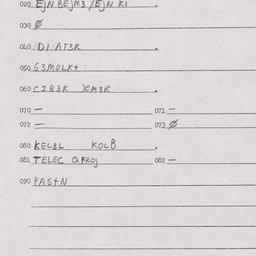 020 EJN BEJM3 / EJN KI .
030 Ø
040 /DI/AT3R .
050 G3MOLK+
060 C1B3R )(M3R .
070 — 071 —
072 — 073 Ø
080 KELBL KOLB .
081 TELEC QFROJ 082 —
090 PAS+N